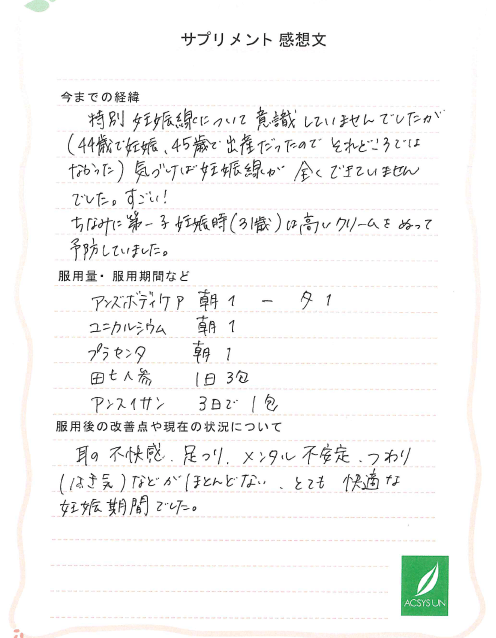 サプリメント 感想文
今までの経緯
特別 妊娠線について 意識していませんでしたが
(44歳で妊娠、45歳で出産だったので それどころでは
なかった) 気づけば妊娠線が 全くできていません
でした。すごい!
ちなみに第一子妊娠時(31歳)は高いクリームをぬって
予防していました。
服用量・服用期間など
アンズボディケア 朝1 ー 夕1
ユニカルシウム 朝1
プラセンタ 朝1
田七人参 1日3包
アンスイサン 3日で1包
服用後の改善点や現在の状況について
耳の不快感、足つり、メンタル不安定、つわり
(はき気)などがほとんどない、とても 快適な
妊娠期間でした。
ACSYSUN